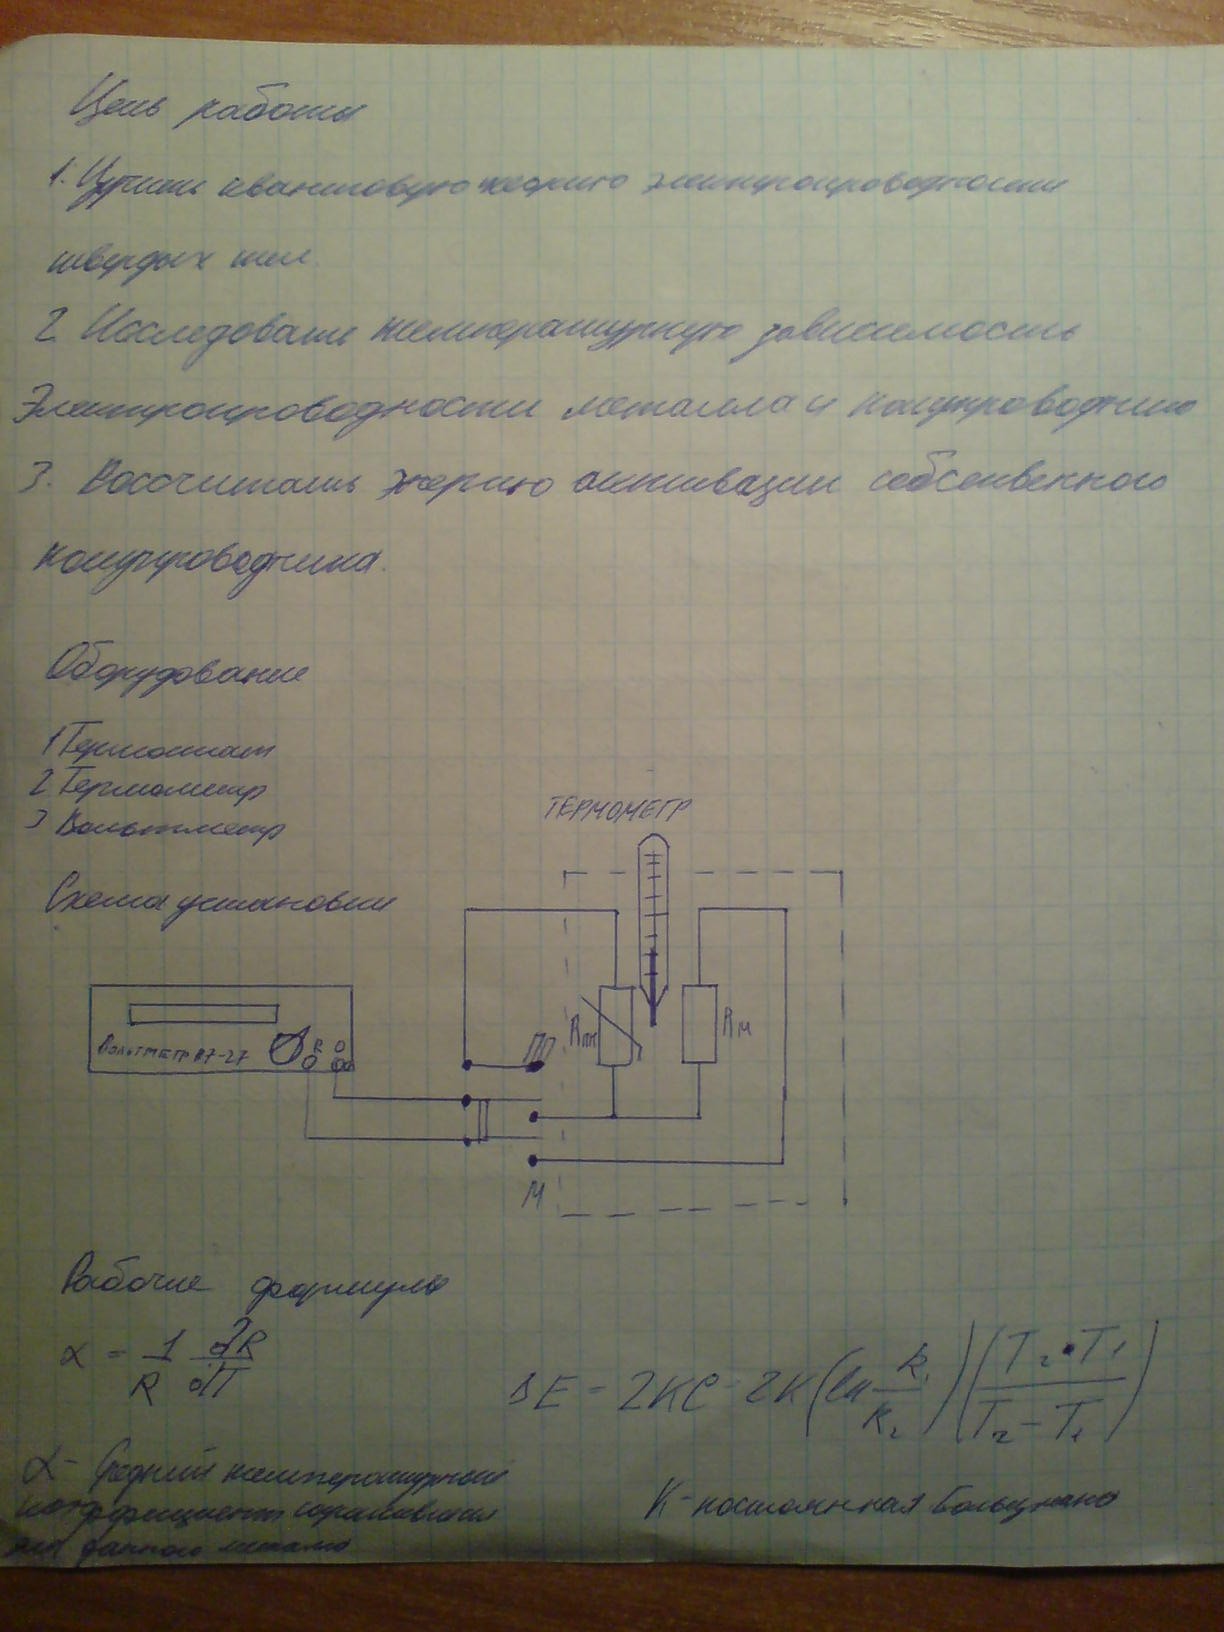 Цель работы
1. Изучить квантовую теорию электропроводности
твердых тел.
2. Исследовать температурную зависимость
Электропроводности металла и полупроводника
3. Рассчитать энергию активации собственного
полупроводника.
Оборудование
1 Термостат
2 Термометр
3 Вольтметр
ТЕРМОМЕТР
Схема установки
Rпп
Rм
ПП
Вольтметр В7-27
R
М
Рабочие формулы
α = 1/R dR/dT
ΔE = 2KC = 2K (ln R₁/R₂) (T₂·T₁/T₂-T₁)
α - Средний температурный
коэффициент сопротивления
для данного металла
K - постоянная Больцмана